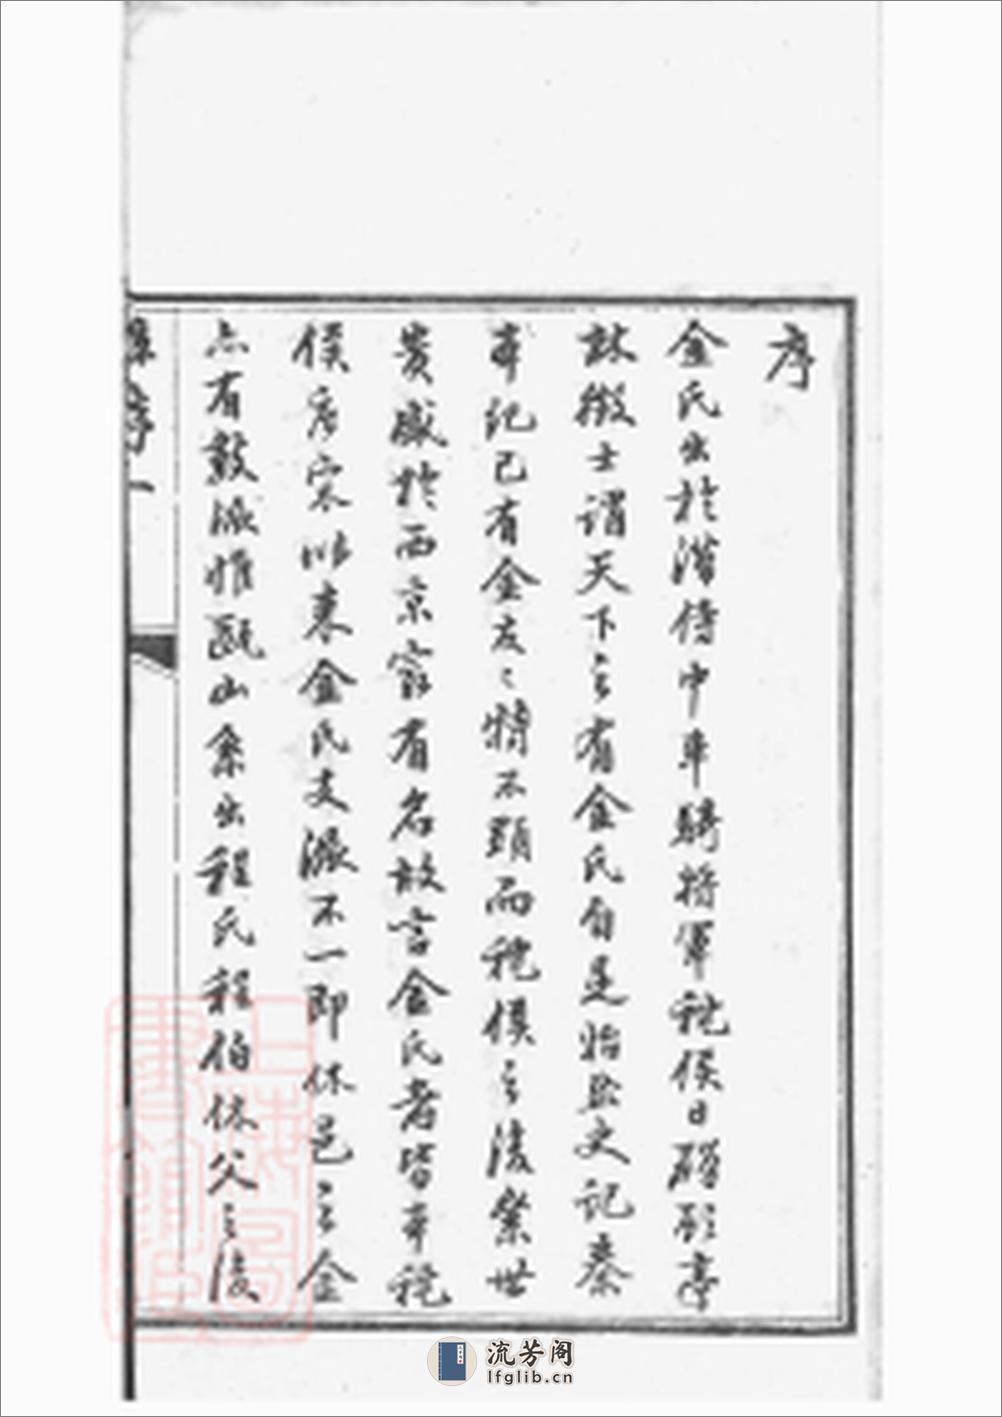 序
金氏出於漢侍中車騎將軍秺侯日磾顧亭
林徵士謂天下之有金氏自是始然史記秦
本紀已有金友之特不顯而秺侯之後累世
貴盛於西京最有名故言金氏者皆本秺
侯唐宋以來金氏支派不一即休邑之金
亦有數派惟甌山系出程氏程伯休父之後
序一
上海圖書館藏
流芳阁
lfglib.cn